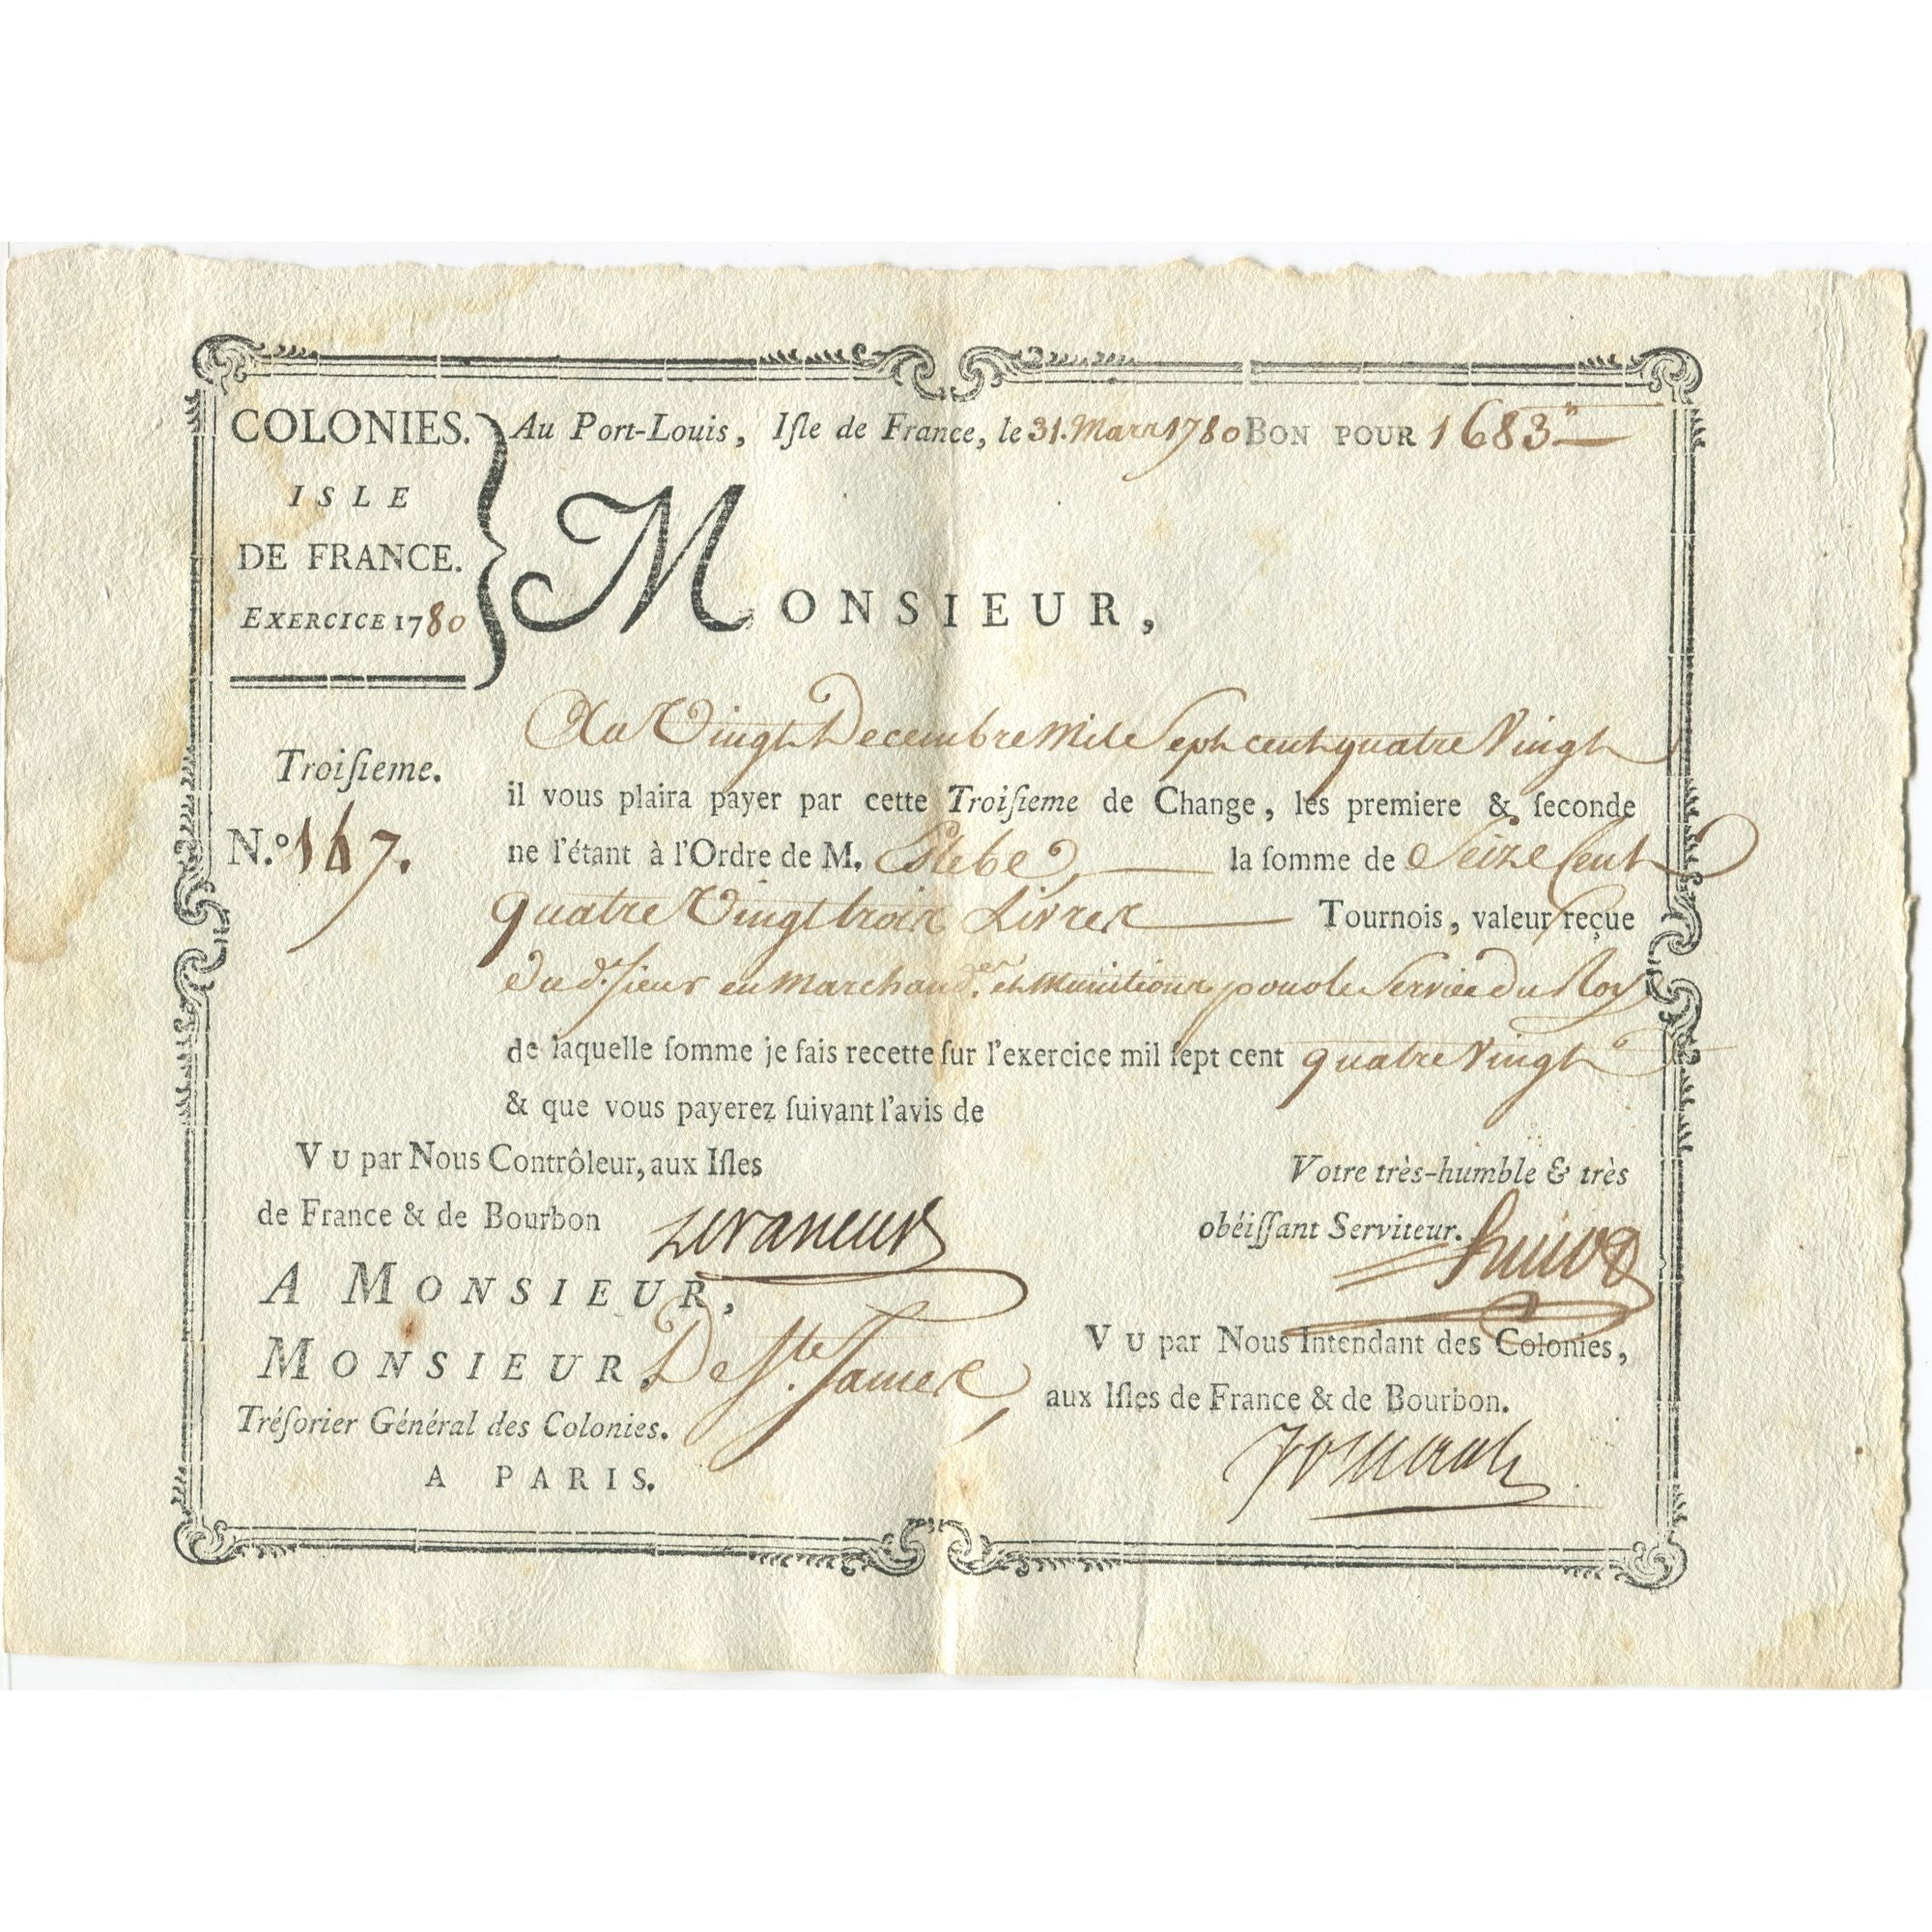 COLONIES.
ISLE
DE FRANCE.
EXERCICE 1780
Au Port-Louis, Iſle de France, le 31. Mars 1780 BON POUR 1683
MONSIEUR,
Au Vingt Decembre Mil Sept cent quatre Vingt
Troiſieme.
N.º 147.
il vous plaira payer par cette Troiſieme de Change, les premiere & ſeconde
ne l'étant à l'Ordre de M. Estebe la ſomme de Seize Cent
quatre Vingt trois Livres Tournois, valeur reçue
du d. Sieur en Marchand.es et Munitions pour le Service du Roy
de laquelle ſomme je fais recette ſur l'exercice mil ſept cent quatre Vingt
& que vous payerez ſuivant l'avis de
VU par Nous Contrôleur, aux Iſles
de France & de Bourbon
Votre très-humble & très
obéiſſant Serviteur.
A MONSIEUR,
MONSIEUR, De Ste. James
Tréſorier Général des Colonies.
A PARIS.
VU par Nous Intendant des Colonies,
aux Iſles de France & de Bourbon.